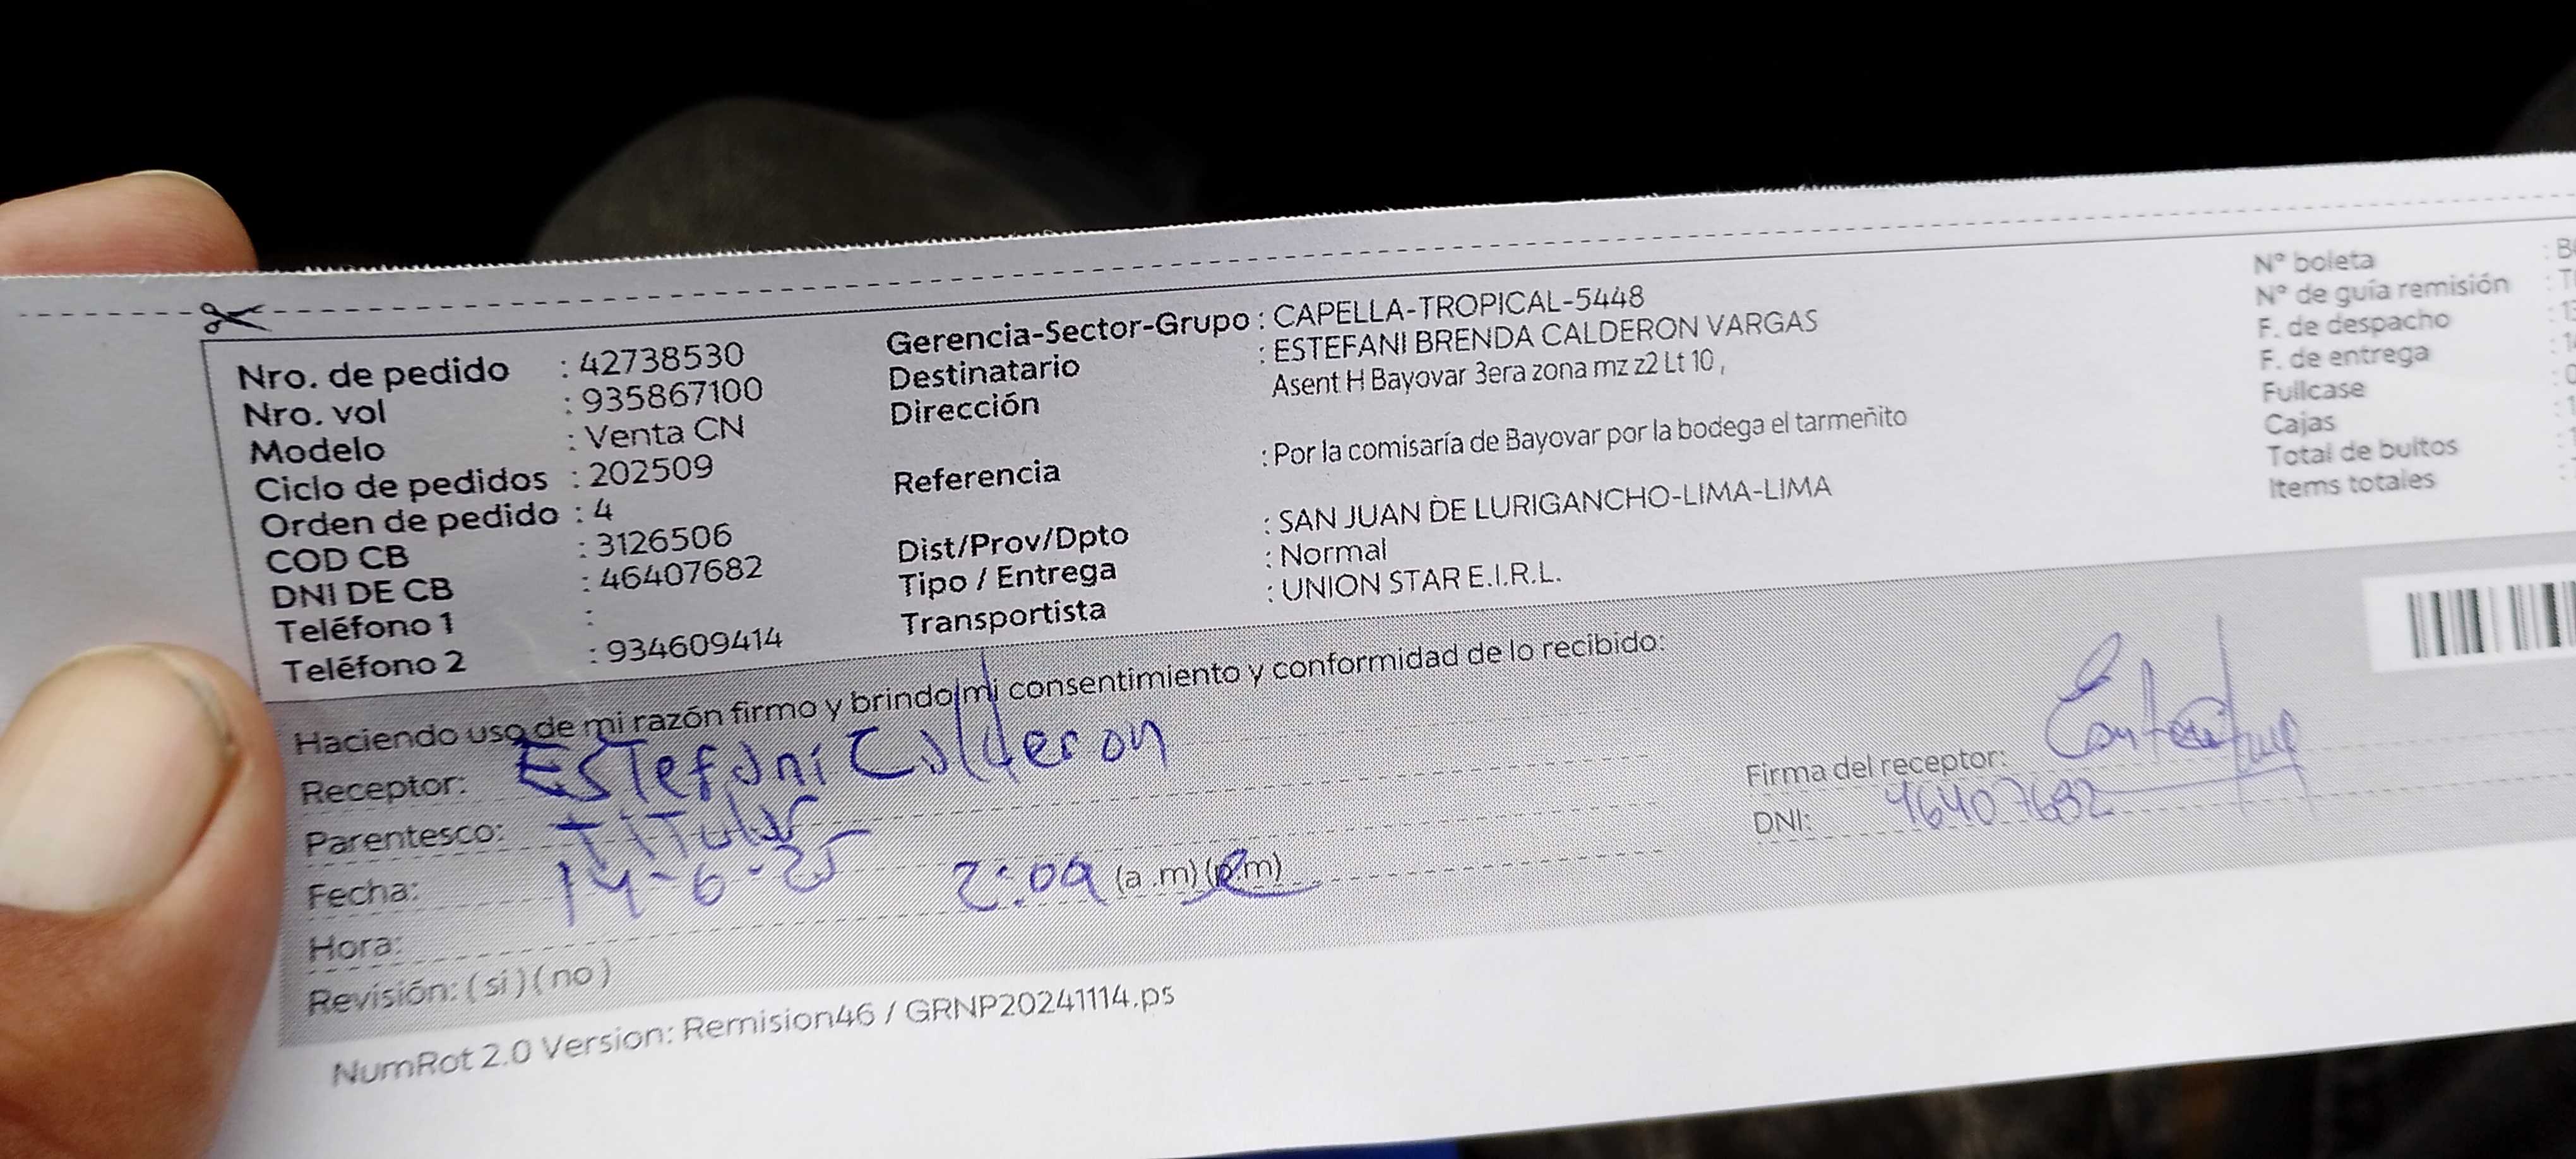 Nro. de pedido : 42738530
Nro. vol : 935867100
Modelo : Venta CN
Ciclo de pedidos : 202509
Orden de pedido : 4
COD CB : 3126506
DNI DE CB : 46407682
Teléfono 1 :
Teléfono 2 : 934609414
Gerencia-Sector-Grupo : CAPELLA-TROPICAL-5448
Destinatario : ESTEFANI BRENDA CALDERON VARGAS
Dirección Asent H Bayovar 3era zona mz z2 Lt 10 ,
Referencia : Por la comisaría de Bayovar por la bodega el tarmeñito
Dist/Prov/Dpto : SAN JUAN DE LURIGANCHO-LIMA-LIMA
Tipo / Entrega : Normal
Transportista : UNION STAR E.I.R.L.
N° boleta
N° de guía remisión
F. de despacho
F. de entrega
Fullcase
Cajas
Total de bultos
Items totales
Haciendo uso de mi razón firmo y brindo mi consentimiento y conformidad de lo recibido:
Receptor: Estefani Calderon
Parentesco: Titular
Fecha: 14-6-25
Hora: 2:09 (a .m) (p.m)
Revisión: ( si ) ( no )
Firma del receptor:
DNI: 46407682
NumRot 2.0 Version: Remision46 / GRNP20241114.ps